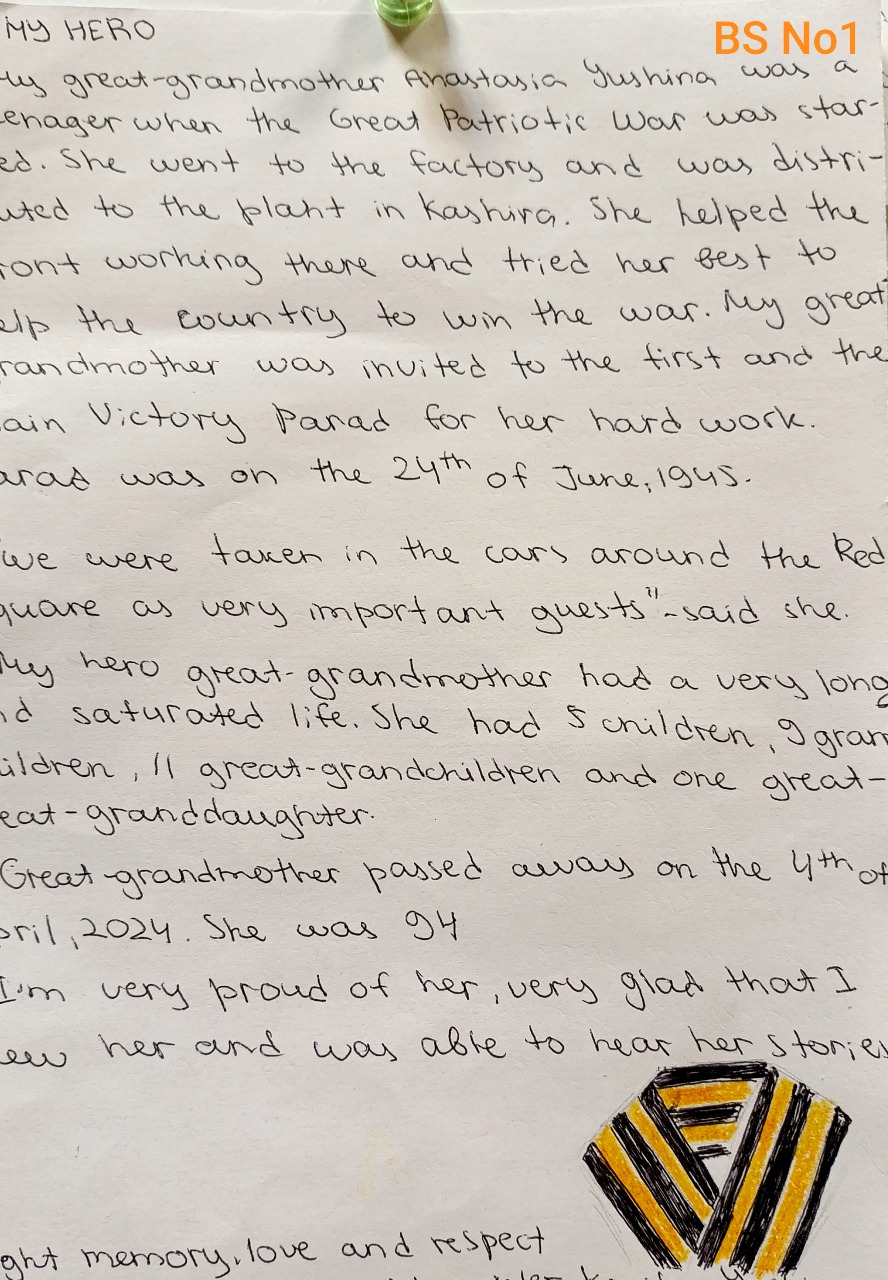 MY HERO
BS No1
My great-grandmother Anastasia Yushina was a
enager when the Great Patriotic War was star-
ed. She went to the factory and was distri-
uted to the plant in Kashira. She helped the
ront working there and tried her best to
elp the country to win the war. My great
randmother was invited to the first and the
ain Victory Parad for her hard work.
arad was on the 24th of June, 1945.
we were taken in the cars around the Red
quare as very important guests"-said she.
My hero great-grandmother had a very long
nd saturated life. She had 5 children, 9 gran
ildren, 11 great-grandchildren and one great-
eat-granddaughter.
Great-grandmother passed away on the 4th of
pril, 2024. She was 94
I'm very proud of her, very glad that I
ew her and was able to hear her stories
ght memory, love and respect